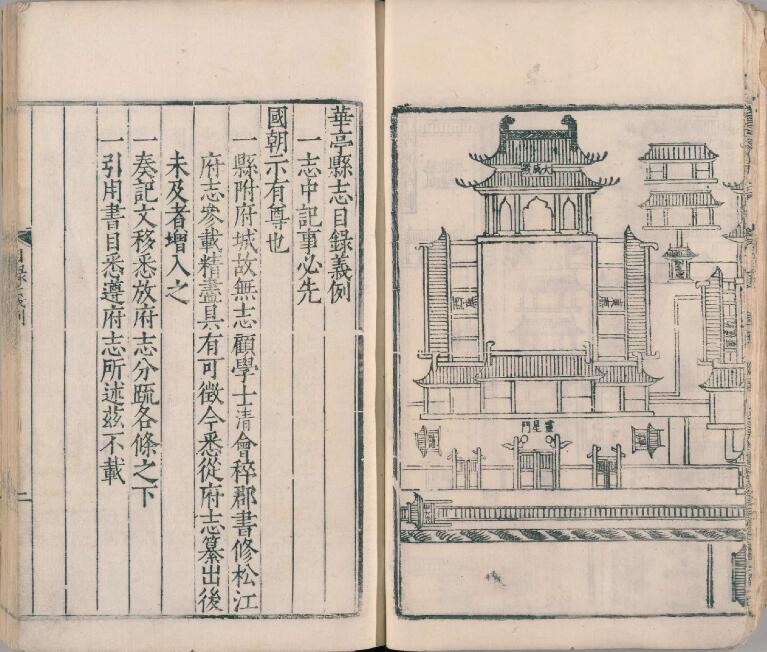 大成殿
門星靈
華亭縣志目録義例
一志中記事必先
國朝示有尊也
一縣附府城故無志顧學士清會稡郡書修松江
府志參載精盡具有可徵今悉從府志纂出後
未及者增入之
一奏記文移悉放府志分疏各條之下
一引用書目悉遵府志所述茲不載